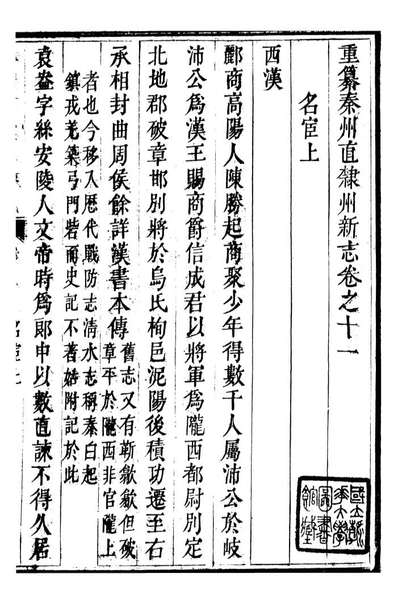 重纂秦州直隸州新志卷之十一
名宦上
西漢
酈商高陽人陳勝起商聚少年得數千人屬沛公於岐
沛公為漢王賜商爵信成君以將軍為隴西都尉別定
北地郡破章邯別將於烏氏栒邑泥陽後積功遷至右
丞相封曲周侯餘詳漢書本傳
舊志又有靳歙歙但破
章平於隴西非官隴上
者也今移入歷代戰防志清水志稱秦白起
鎮戎羌築弓門砦而史記不著姑附記於此
袁盎字絲安陵人文帝時為郎中以數直諫不得久居
名宦上